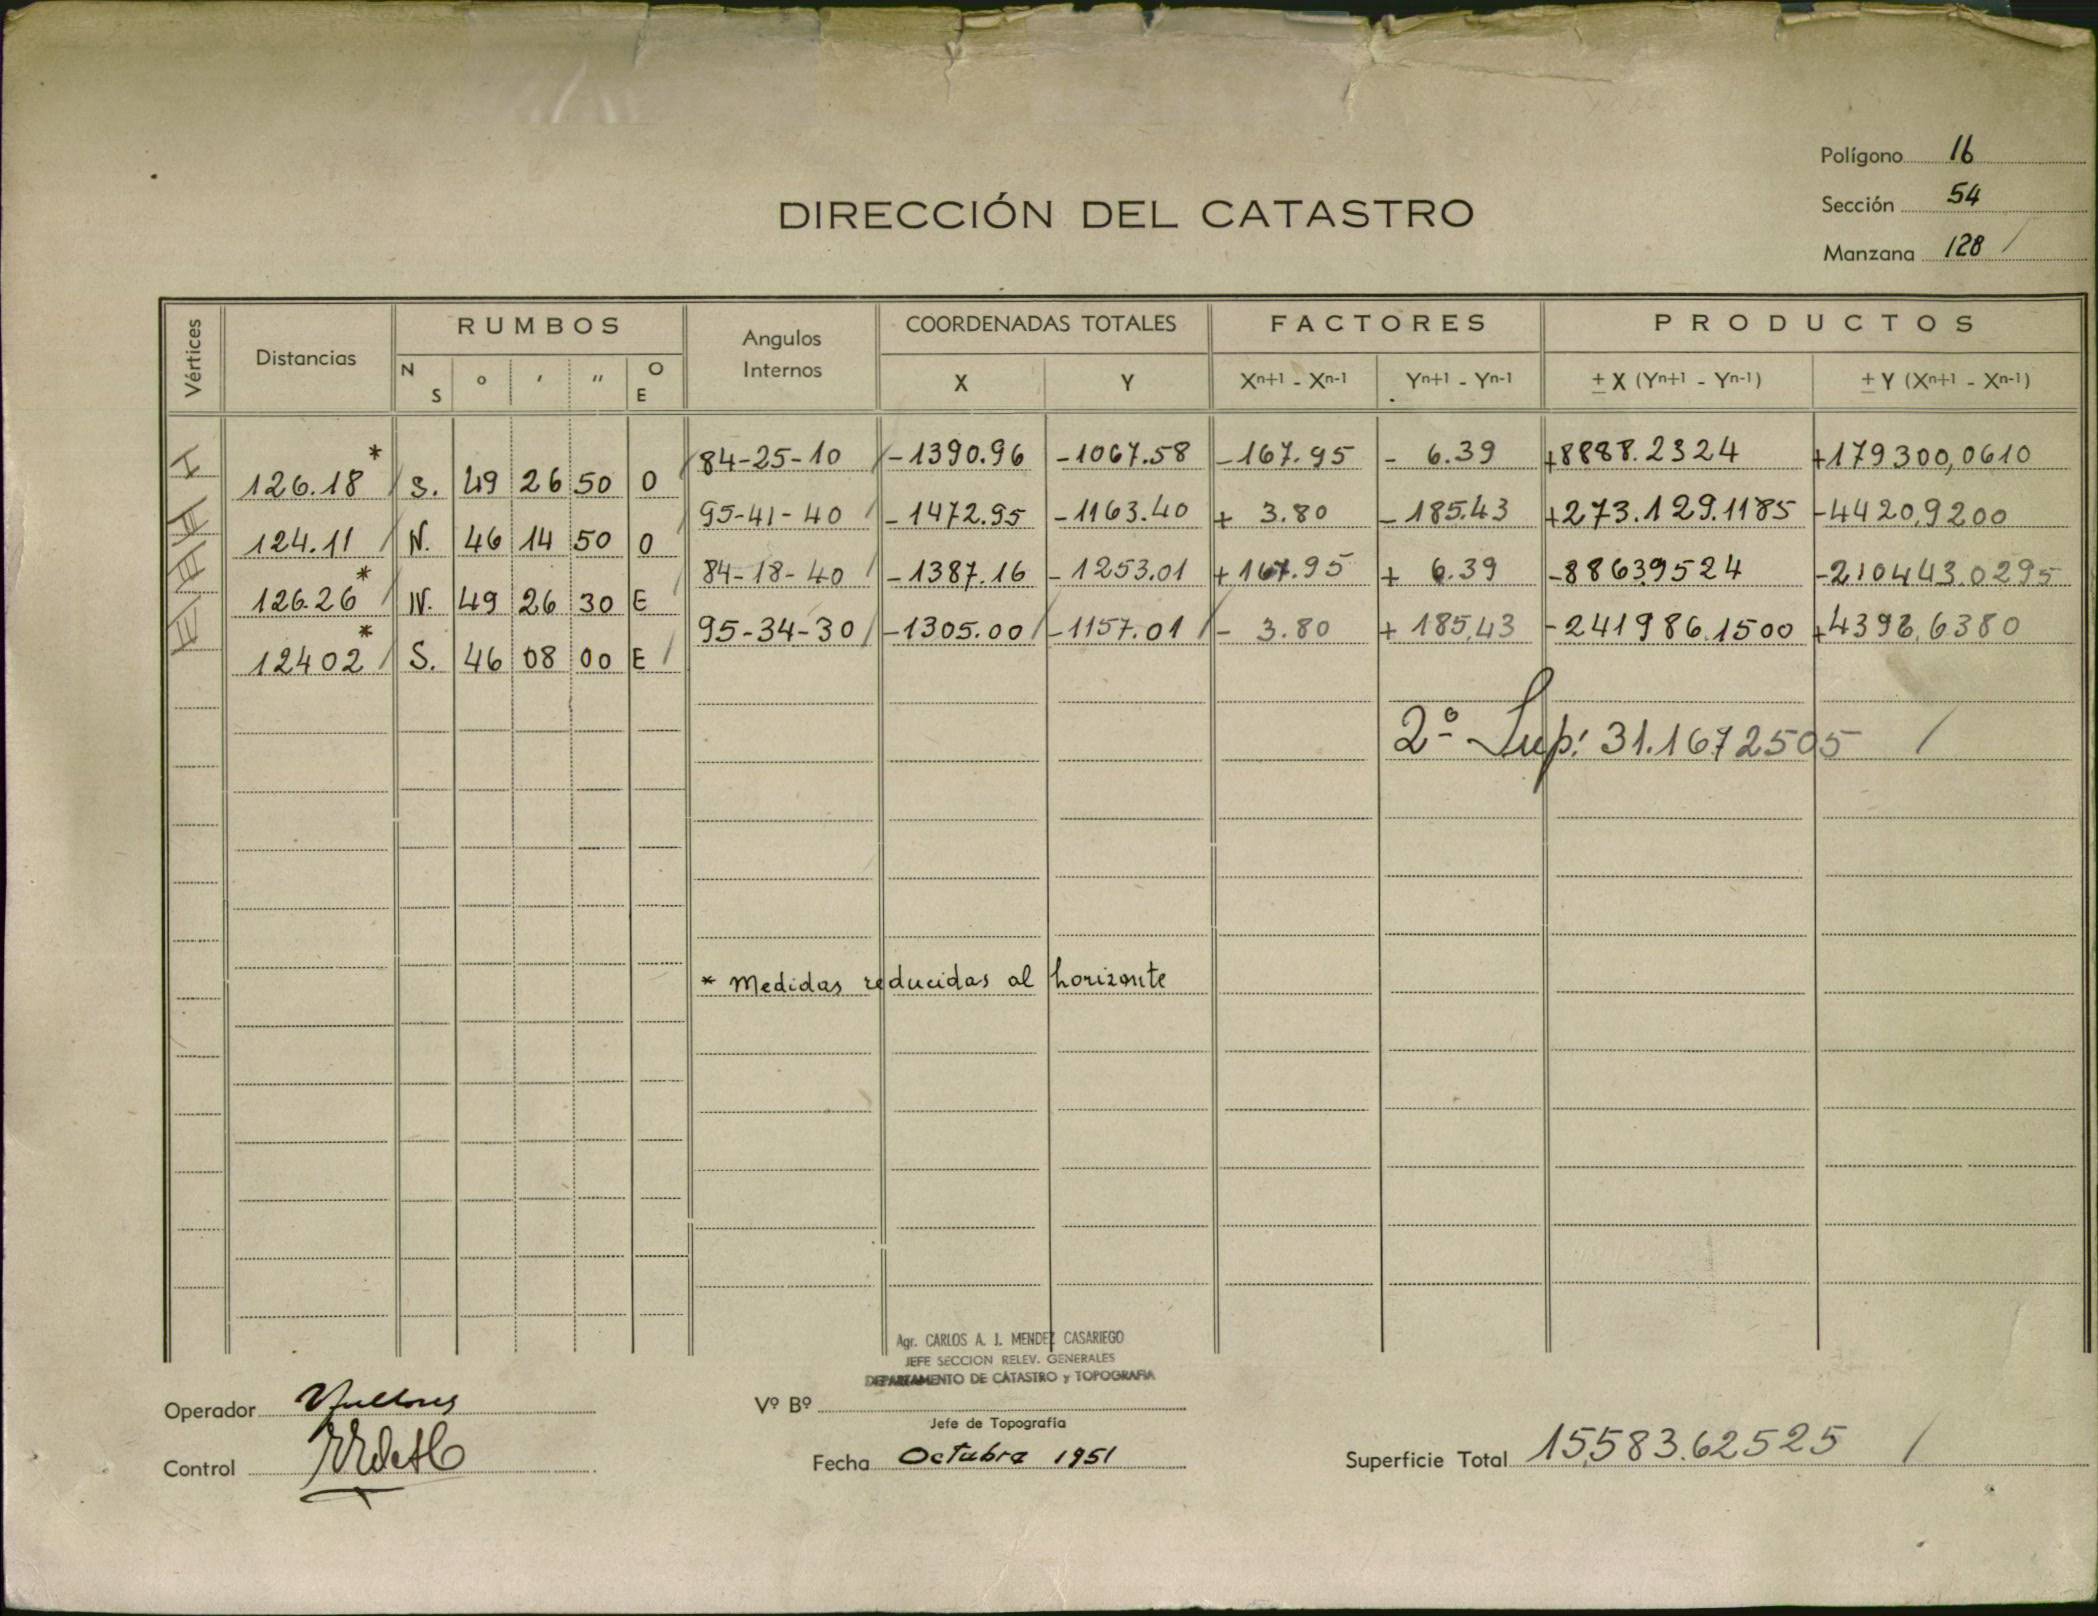 Polígono 16
Sección 54
DIRECCIÓN DEL CATASTRO
Manzana 128 /
Vértices Distancias RUMBOS N S ° ' " O E Angulos Internos COORDENADAS TOTALES X Y FACTORES Xn+1 - Xn-1 Yn+1 - Yn-1 PRODUCTOS ± X (Yn+1 - Yn-1) ± Y (Xn+1 - Xn-1)
I 84-25-10 / -1390.96 -1067.58 -167.95 - 6.39 +8888.2324 +179300,0610
126.18 * / S. 49 26 50 O /
II 95-41-40 / -1472.95 -1163.40 + 3.80 - 185.43 +273.129.1185 -4420,9200
124.11 / N. 46 14 50 O /
III 84-18-40 / -1387.16 -1253.01 +167.95 + 6.39 -88639524 -210443.0295
126.26 * / N. 49 26 30 E /
IV 95-34-30 / -1305.00 / -1157.01 / - 3.80 + 185,43 -241986.1500 +4396,6380
12402 * / S. 46 08 00 E /
2ª Sup: 31.1672505 /
* Medidas reducidas al horizonte
Agr. CARLOS A. J. MENDEZ CASARIEGO
JEFE SECCION RELEV. GENERALES
DEPARTAMENTO DE CATASTRO y TOPOGRAFIA
Operador
Vº Bº
Jefe de Topografía
Control
Fecha Octubre 1951
Superficie Total 15,583.62525 /